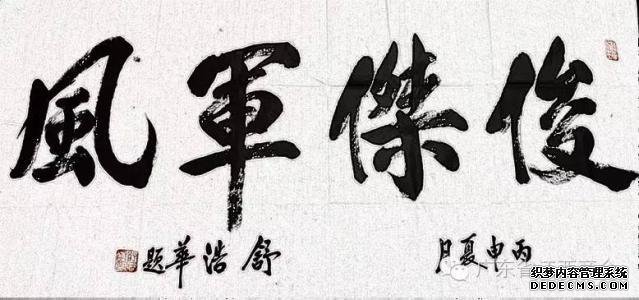 俊傑軍風
丙申夏月
舒浩華題
织梦内容管理系统
DEDECMS.COM